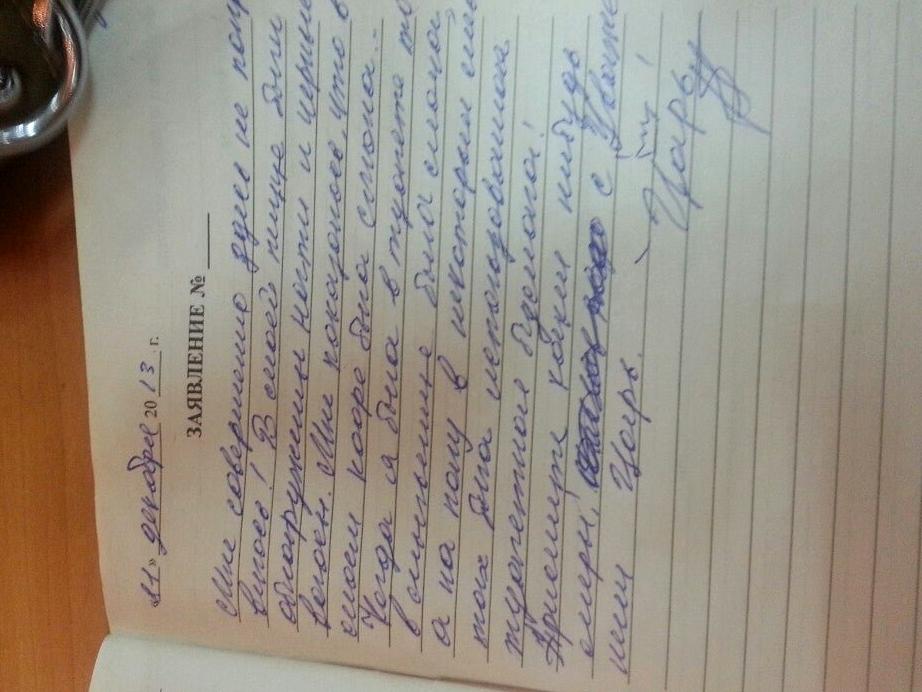 «11» декабря 2013 г.
ЗАЯВЛЕНИЕ №
Мне совершенно здесь не понр
вилось! В моей пище были
обнаружены ногти и черный
волос. Мне показалось, что в
моём кофе была слюна.
Когда я была в туалете то
в смыльнице была слюна,
а на полу в некоторых мес
тах была
туалетная бумага!
Примите какие нибудь
меры, с Уваже
нием Царь. Царь